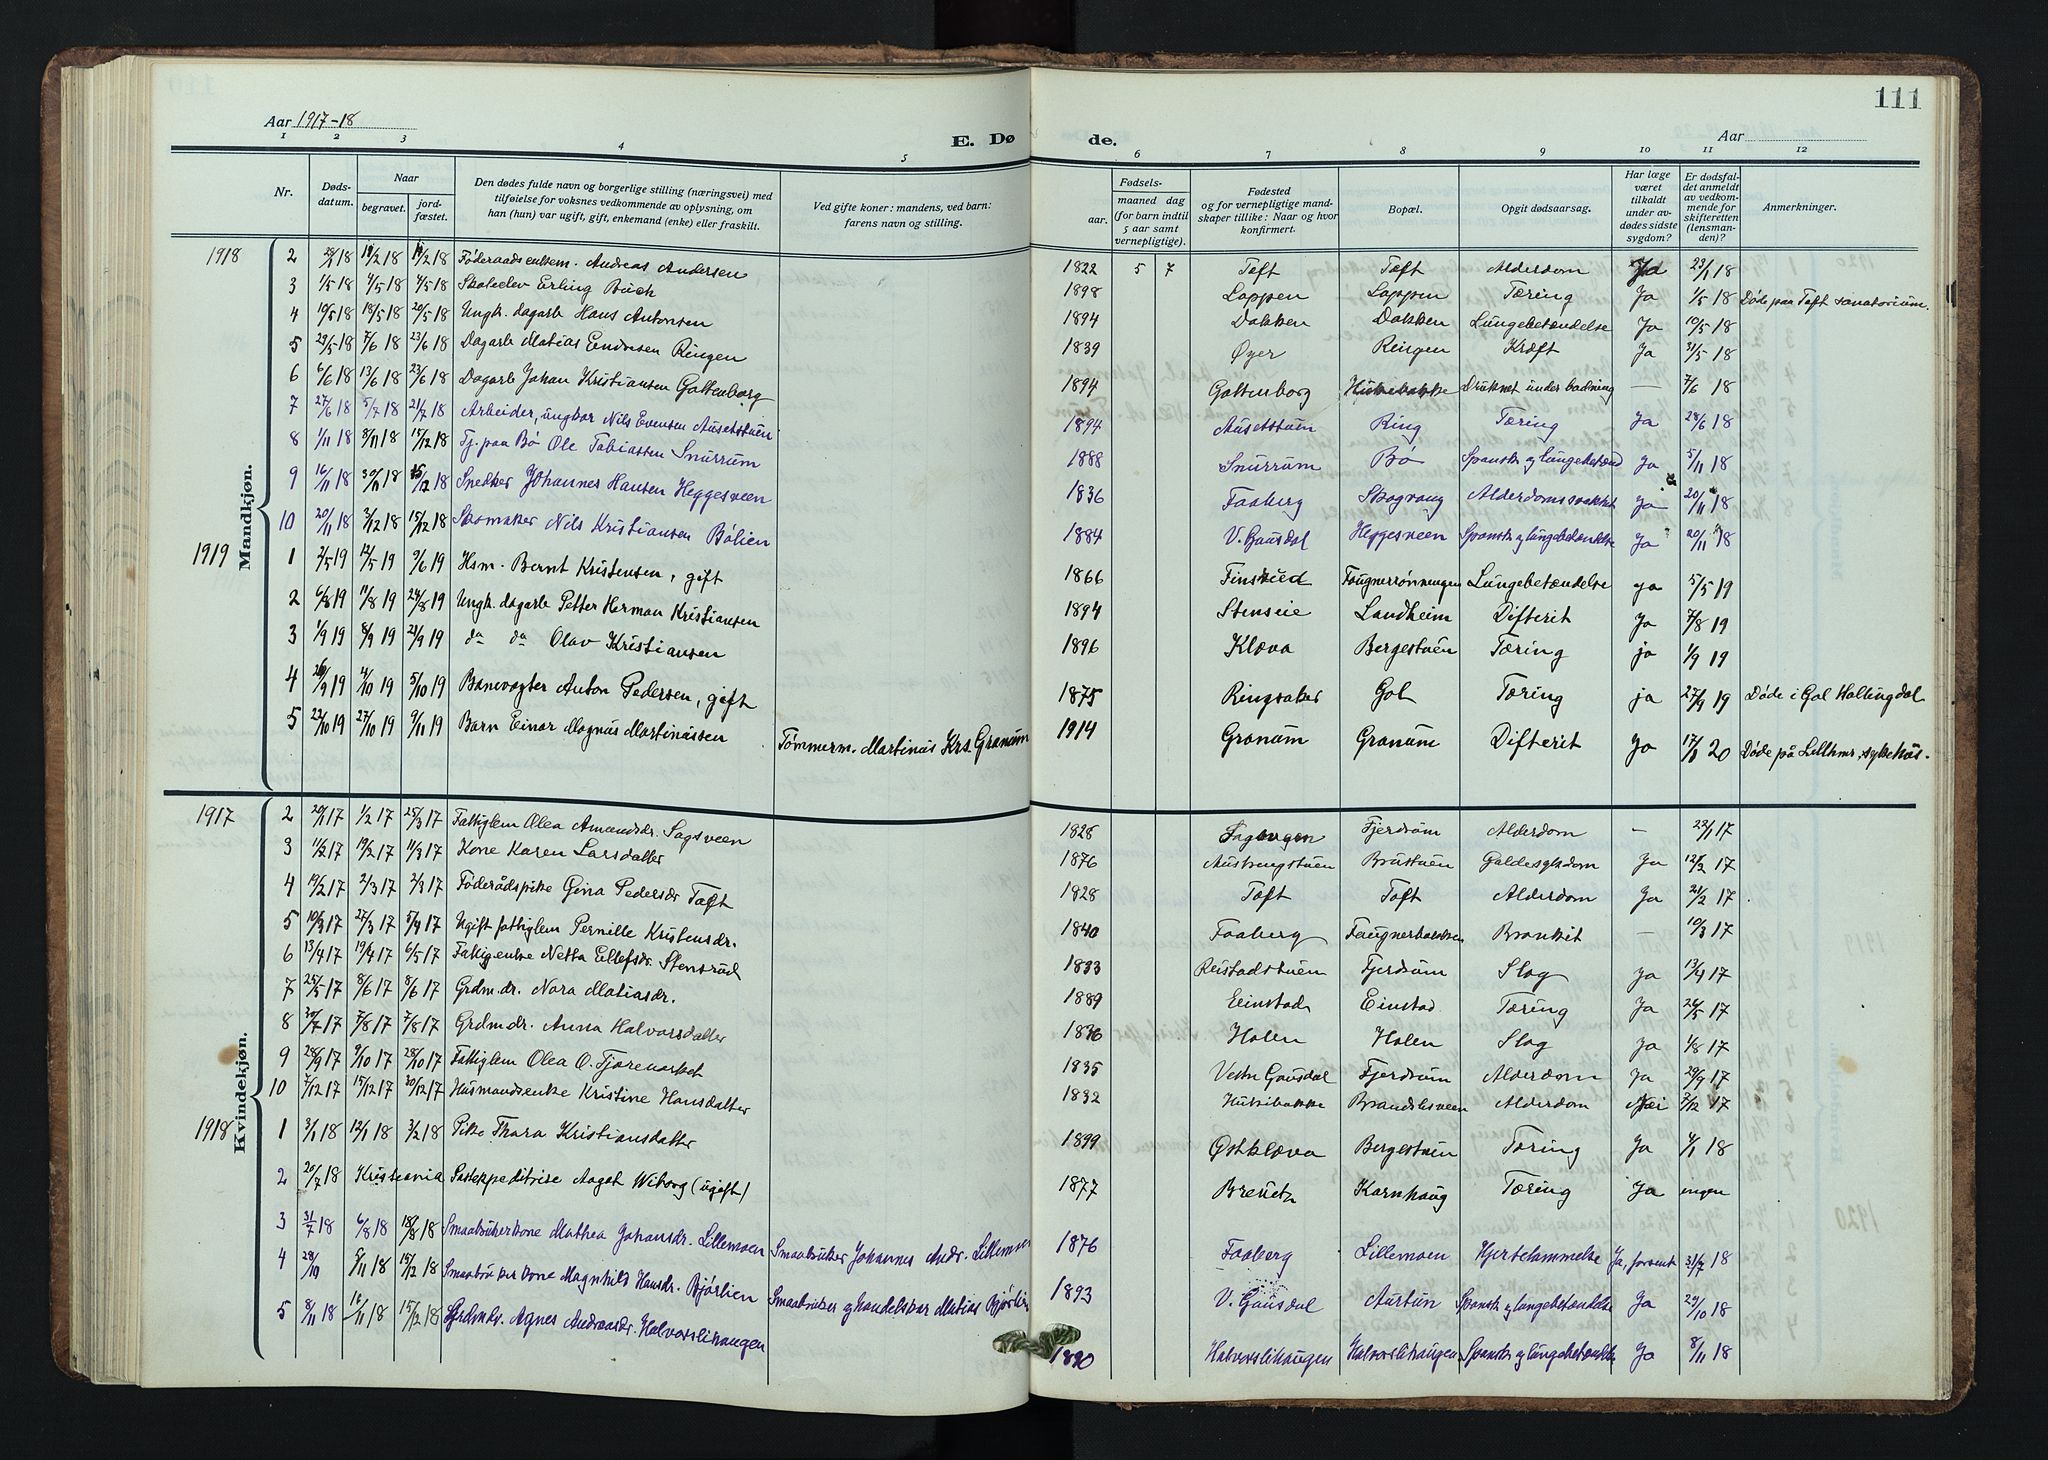 111
Aar 1917-18
E. Dø de.
Aar
1 2 3 4 5 6 7 8 9 10 11 12
Nr. Døds-datum. Naar begravet. jord-fæstet. Den dødes fulde navn og borgerlige stilling (næringsvei) med tilføielse for voksnes vedkommende av oplysning, om han (hun) var ugift, gift, enkemand (enke) eller fraskilt. Ved gifte koner: mandens, ved barn: farens navn og stilling. Fødsels- aar. maaned dag (for barn indtil 5 aar samt vernepligtige). Fødested og for vernepligtige mandskaper tillike: Naar og hvor konfirmert. Bopæl. Opgit dødsaarsag. Har læge været tilkaldt under avdødes sidste sygdom? Er dødsfaldet anmeldt av vedkommende for skifteretten (lensmanden)? Anmerkninger.
Mandkjøn.
1918 2 18 19/2 18 19/2 18 Føderaadsenkem. Andreas Andersen 1822 5 7 Toft Toft Alderdom Ja 23/1 18
3 1/5 18 4/5 18 4/5 18 Skoleelev Erling Buch 1898 Loppen Loppen Tæring Ja 1/5 18 Døde paa Toft sanatorium.
4 10/5 18 18/5 18 20/5 18 Ungk. dagarb Hans Antonsen 1894 Dakken Dakken Lungebetændelse Ja 10/5 18
5 29/5 18 7/6 18 23/6 18 Dagarb Matias Endresen Ringen 1839 Øyer Ringen Kræft Ja 31/5 18
6 6/6 18 13/6 18 23/6 18 Dagarb Johan Kristiansen Goltenborg 1894 Goltenborg Druknet under badning — 7/6 18
7 27/6 18 5/7 18 21/7 18 Arbeider, ungkar Nils Evensen Ausetstuen 1894 Ausetstuen Ring Tæring Ja 28/6 18
8 1/11 18 8/11 18 15/12 18 Tj. paa Bø Ole Tobiassen Snurrum 1888 Snurrum Bø Spansk og lungebetænd Ja 5/11 18
9 16/11 18 30/11 18 15/12 18 Snedker Johannes Hansen Heggesveen 1836 Faaberg Skogvang Alderdomssvakhet Ja 20/11 18
10 20/11 18 3/12 18 15/12 18 Skomaker Nils Kristiansen Bølien 1884 V. Gausdal Heggesveen Spansk og lungebetændelse Ja 20/11 18
1919 1 2/5 19 12/5 19 9/6 19 Hsm. Bernt Kristensen, gift 1866 Finstued Fougnerrønningen Lungebetændelse ja 5/5 19
2 6/8 19 11/8 19 24/8 19 Ungk. dagarb Petter Herman Kristiansen 1894 Stenseie Landheim Difterit Ja 7/8 19
3 1/9 19 8/9 19 21/9 19 do do Olav Kristiansen 1896 Klæva Bergestuen Tæring ja 1/9 19
4 26/9 19 4/10 19 5/10 19 Banevogter Anton Pedersen, gift 1875 Ringsaker Gol Tæring ja 27/9 19 Døde i Gol Hallingdal
5 22/10 19 27/10 19 9/11 19 Barn Einar Magnus Martinussen Tømmerm. Martinus Krs. Granum 1914 Granum Granum Difterit Ja 17/1 20 Døde på Lillhmr. sykehus.
Kvindekjøn.
1917 2 20/1 17 1/2 17 25/3 17 Fattiglem Olea Amundsdr. Sagsveen 1825 Fjerdrum Alderdom — 22/1 17
3 11/2 17 19/2 17 11/3 17 Kone Karen Larsdatter 1876 Austrengstuen Brustuen Galdesykdom Ja 12/2 17
4 19/2 17 2/3 17 2/3 17 Føderådspike Gina Pedersdr Toft 1828 Toft Toft Alderdom Ja 21/2 17
5 10/3 17 27/3 17 5/4 17 Ugift fattiglem Pernille Kristensdr. 1840 Faaberg Fougnerbakken Bronkit — 10/3 17
6 13/4 17 19/4 17 6/5 17 Fattigenke Netta Ellefsdr. Stensrud 1833 Reistadstuen Fjerdrum Slag ja 13/4 17
7 25/5 17 8/6 17 8/6 17 Grdm.dr. Nora Matiasdr. 1889 Einstad Einstad Tæring Ja 26/5 17
8 30/7 17 7/8 17 7/8 17 Grdm.dr. Anna Halvorsdatter 1836 Holen Holen Slag ja 1/8 17
9 28/9 17 9/10 17 28/10 17 Fattiglem Olea O. 1835 Vestre Gausdal Fjerdrum Alderdom Ja 29/9 17
10 7/12 17 15/12 17 30/12 17 Husmandsenke Kristine Hansdatter 1832 Hukibakke Brandslisveen Alderdom Nei 7/12 17
1918 1 3/1 18 12/1 18 3/2 18 Pike Thora Kristiansdatter 1899 Østklæva Bergestuen Tæring Ja 4/1 18
2 20/7 18 Kristiania Postexpeditrise Aagot Wiborg (ugift) 1877 Karnhaug Tæring Ja ingen
3 31/7 18 6/8 18 18/8 18 Smaabrukerkone Mathea Johansdr. Lillemoen Smaabruker Johannes Andr. Lillemoen 1876 Faaberg Lillemoen Hjertelammelse Ja, forsent 31/7 18
4 28/10 5/11 18 15/12 18 Smaabrukerkone Magnhild Hansdr. Bjørlien Smaabruker og handelskar Matias Bjørlien 1893 V. Gausdal Aurtun Spansk og lungebetændelse Ja 29/10 18
5 8/11 18 16/11 18 15/12 18 Grdmdr. Agnes Andreasdr. Halvorslihaugen 1890 Halvorslihaugen Halvorslihaugen Spansk og lungebetændelse Ja 8/11 18